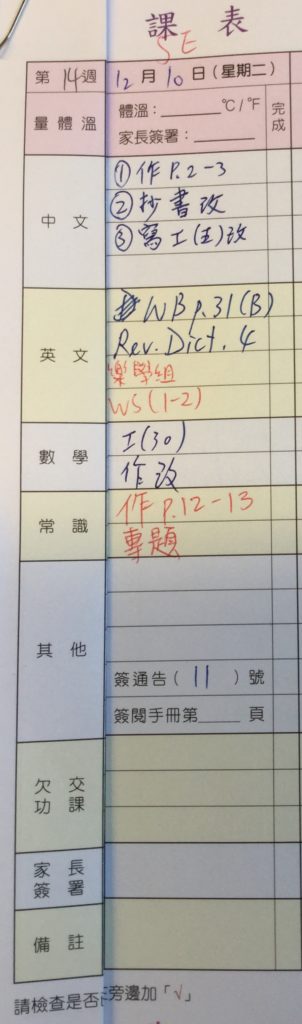 課 表
SE
第14週 12月10日(星期二)
量體溫 體溫:______°C/°F 完成
家長簽署:______
中文 ①作P.2-3
②抄書改
③寫工(五)改
英文 WB p.31(B)
Rev. Dict. 4
樂學組
WS(1-2)
數學 工(30)
作改
常識 作P.12-13
專題
其他
簽通告(11)號
簽閱手冊第____頁
欠交功課
家長簽署
備註
請檢查是否 旁邊加「√」